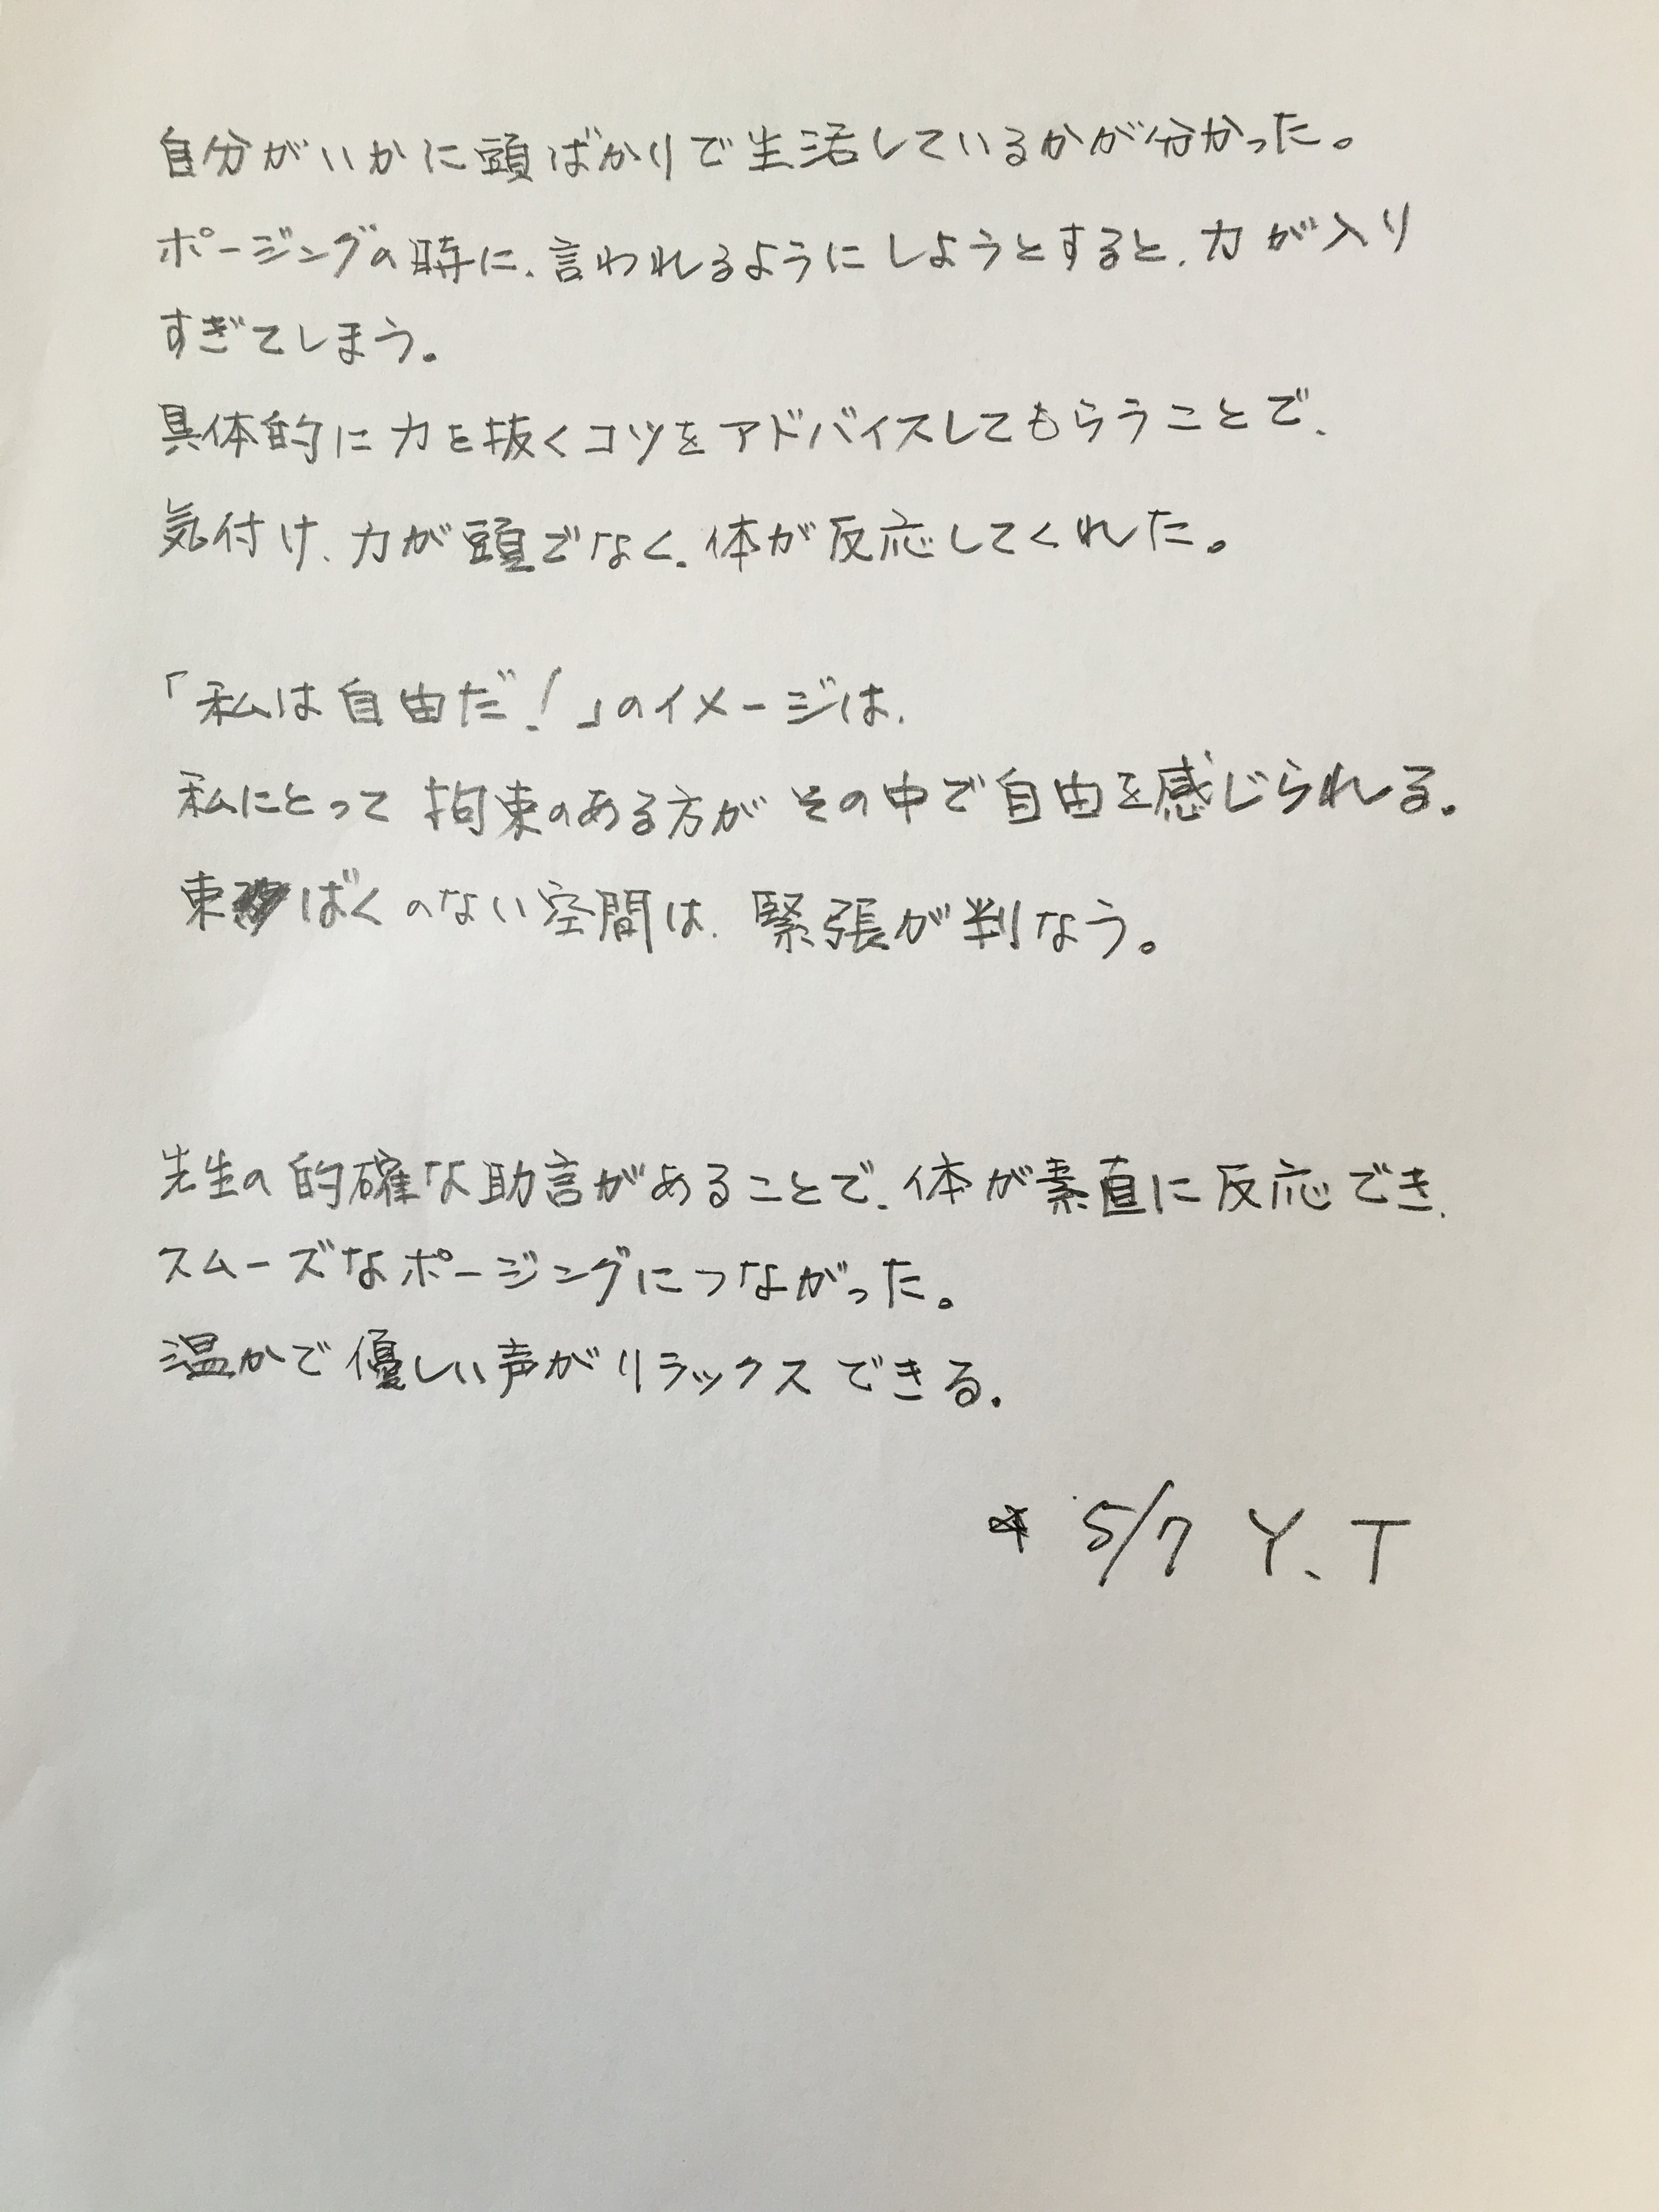 自分がいかに頭ばかりで生活しているかが分かった。
ポージングの時に、言われるようにしようとすると、力が入り
すぎてしまう。
具体的に力を抜くコツをアドバイスしてもらうことで、
気付け、力が頭でなく、体が反応してくれた。
「私は自由だ！」のイメージは、
私にとって拘束のある方がその中で自由を感じられる。
束ばくのない空間は、緊張が判なう。
先生の的確な助言があることで、体が素直に反応でき、
スムーズなポージングにつながった。
温かで優しい声がリラックスできる。
* 5/7 Y.T